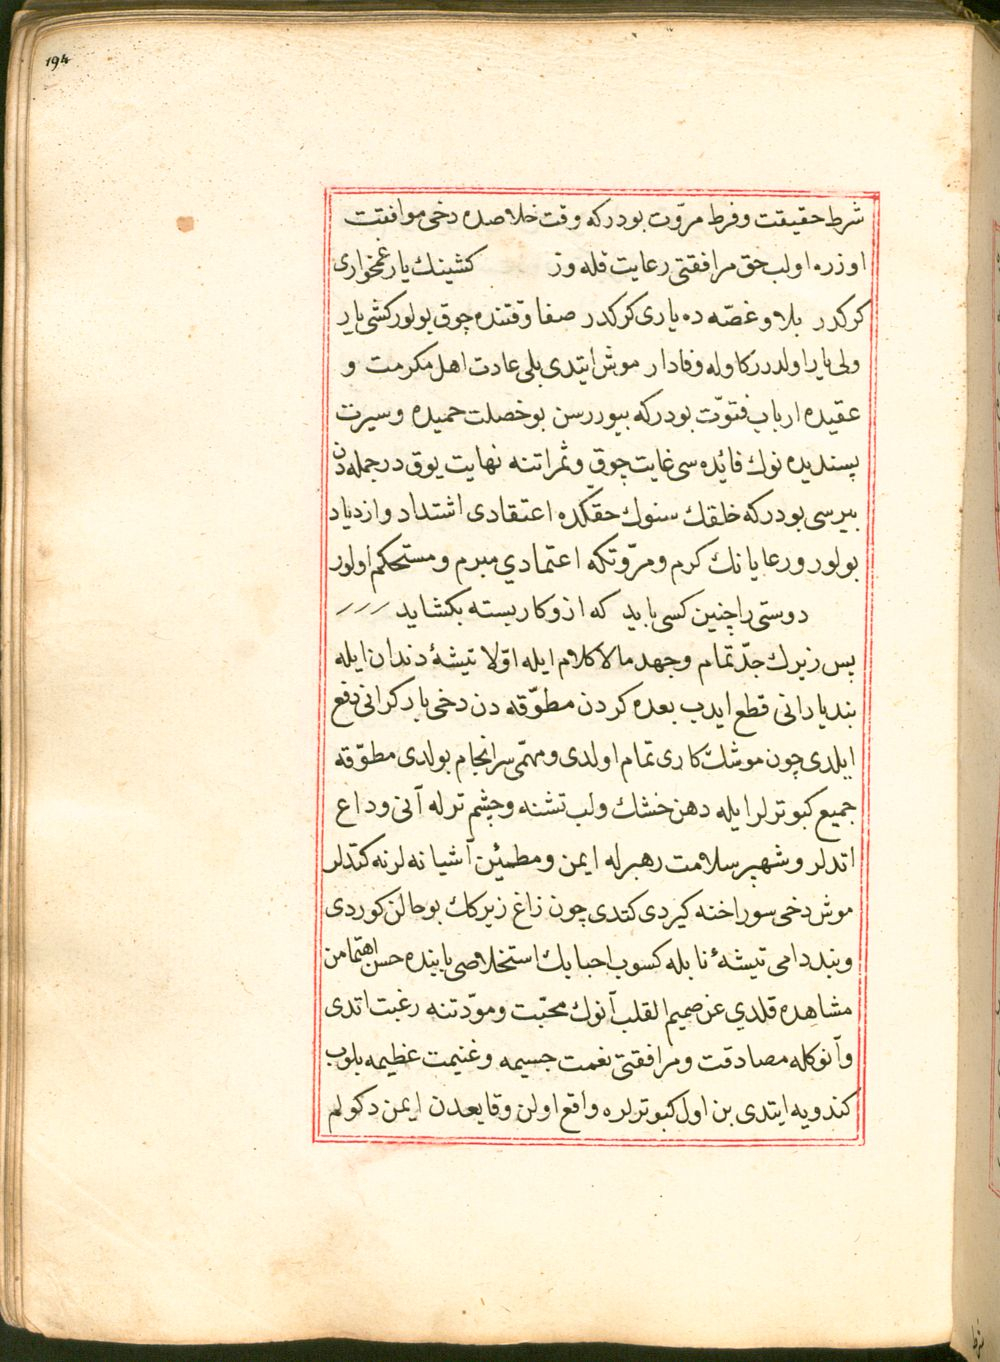 194
شرط حقیقت وفرط مروّت بودركه وقت خلاصده دخی موافقت
اوزره اولب حق مرافقتی رعایت قله وز كشینك یار غمخواری
كركدر بلا وغصّه ده یاری كركدر صفا وقتنده چوق بولور كشی یار
ولی یار اولدرركاوله وفادار موش ایتدی بلی عادت اهل مكرمت و
عقیده ارباب فتوّت بودركه بیوررسن بو خصلت حمیده وسیرت
پسندیده نوك فائده سی غایت چوق وثمراتنه نهایت یوق در جمله دن
بیرسی بودركه خلقك سنوك حقكده اعتقادی اشتداد وازدیاد
بولور ورعایانك كرم ومروّتكه اعتمادی مبرم ومستحكم اولور
دوستی راچنین كسی باید كه ازو كار بسته بكشاید
پس زیرك جدّ تمام وجهد مالا كلام ایله اوّلا تیشۀ دندان ایله
بند یارانی قطع ایدب بعده كردن مطوّقه دن دخی بار كرانی دفع
ایلدی چون موشك كاری تمام اولدی ومهمّی سرانجام بولدی مطوّقه
جمیع كبوترلر ایله دهن خشك ولب تشنه وچشم ترله آنی وداع
اتدلر وشهپر سلامت رهبرله ایمن ومطمئن آشیانه لرنه كتدلر
موش دخی سوراخنه كیردی كتدی چون زاغ زیركك بو حالن كوردی
وبند دامی تیشۀ نابله كسوب احبابك استخلاصی بابنده حسن اهتمامن
مشاهده قلدی عن صمیم القلب آنوك محبّت ومودّتنه رغبت اتدی
وآنوكله مصادقت ومرافقتی نعمت جسیمه وغنیمت عظیمه بلوب
كندویه ایتدی بن اول كبوترلره واقع اولن وقایعدن ایمن دكولم
شرط